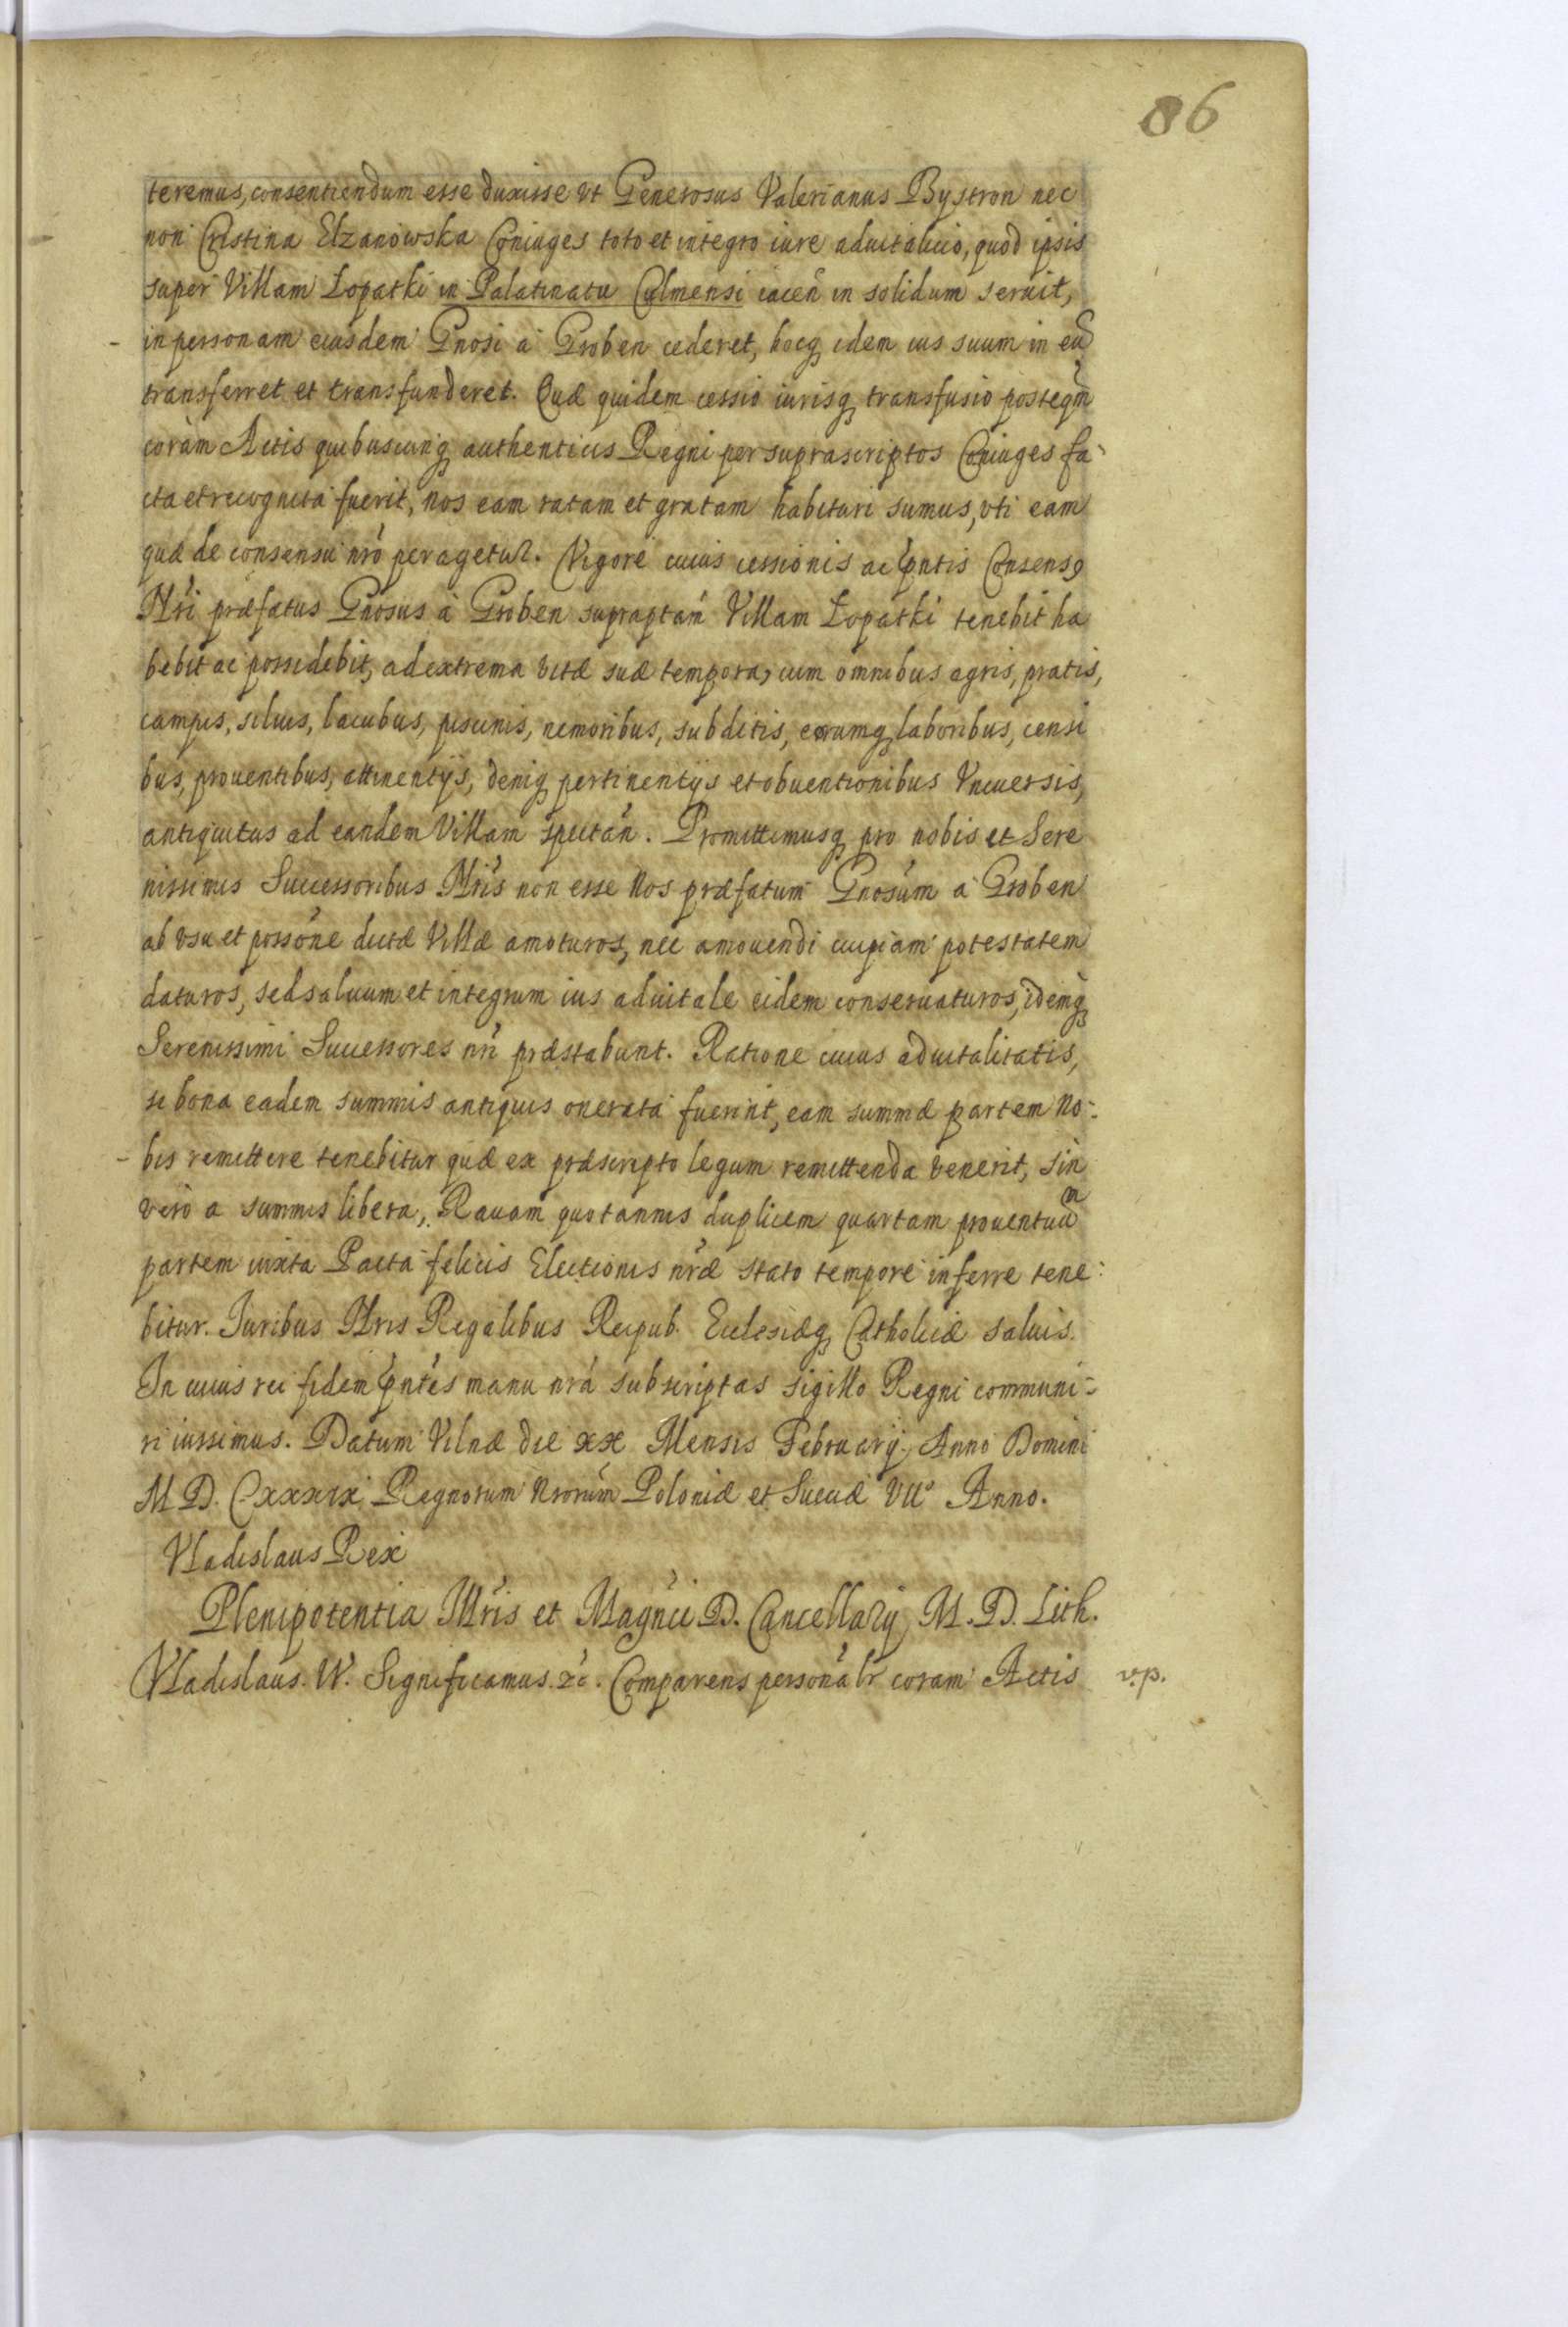 86
teremus, consentiendum esse duxisse vt Generosus Valerianus Bystron nec
non Cristina Elzanowska Coniuges toto et integro iure aduitalicio, quod ipsis
super Villam Łopatki in Palatinatu Culmensi iacen̄ in solidum seruit,
in personam eiusdem Gnosi à Groben cederet, hocq̨ idem ius suum in eū
transferret et transfunderet. Quæ quidem cessio iurisq̨ transfusio posteqm̄
coràm Actis quibuscunq̨ authenticis Regni per suprascriptos Coniuges fa-
cta et recognita fuerit, nos eam ratam et gratam habituri sumus, vti eam
quæ de consensu nrō peragetur. Vigore cuius cessionis ac pn̄tis Consensꝯ
Nr̄i præfatus Gnosus à Groben supraptam̄ Villam Łopatki tenebit ha
bebit ac possidebit, ad extrema vitæ suæ tempora, cum omnibus agris, pratis,
campis, siluis, lacubus, piscinis, nemoribus, subditis, eorumq̨ laboribus, censi
bus, prouentibus, attinentijs, deniq̨ pertinentijs et obuentionibus Vniuersis,
antiquitus ad eandem Villam spectan̄. Promittimusq̨ pro nobis et Sere
nissimis Successoribus Nr̄is non esse Nos præfatum Gnosum à Groben
ab vsu et possōne dictæ Villæ amoturos, nec amouendi cuipiam potestatem
daturos, sed saluum et integrum ius aduitale eidem conseruaturos, idemq̨
Serenissimi Successores nr̄i præstabunt. Ratione cuius aduitalitatis,
si bona eadem summis antiquis onerata fuerint, eam summæ partem No-
bis remittere tenebitur quæ ex præscripto legum remittenda venerit, sin
verò a summis libera, Rauam quotannis duplicem quartam prouentuū
partem iuxta Pacta felicis Electionis nr̄æ stato tempore inferre tene-
bitur. Iuribus Nr̄is Regalibus Reipub. Ecclesiæq̨ Catholicæ saluis.
In cuius rei fidem pn̄tes manu nrā subscriptas sigillo Regni communi-
ri iussimus. Datum Vilnæ die xx Mensis February Anno Domini
M D. Cxxxix Regnorum Nrorum̄ Poloniæ et Sueciæ VII° Anno.
Vladislaus Rex
Plenipotentia Illr̄is et Magn̄ci D. Cancellarij M. D. Lith.
Vladislaus. IV. Significamus. &c. Comparens personalr̄ coram Actis